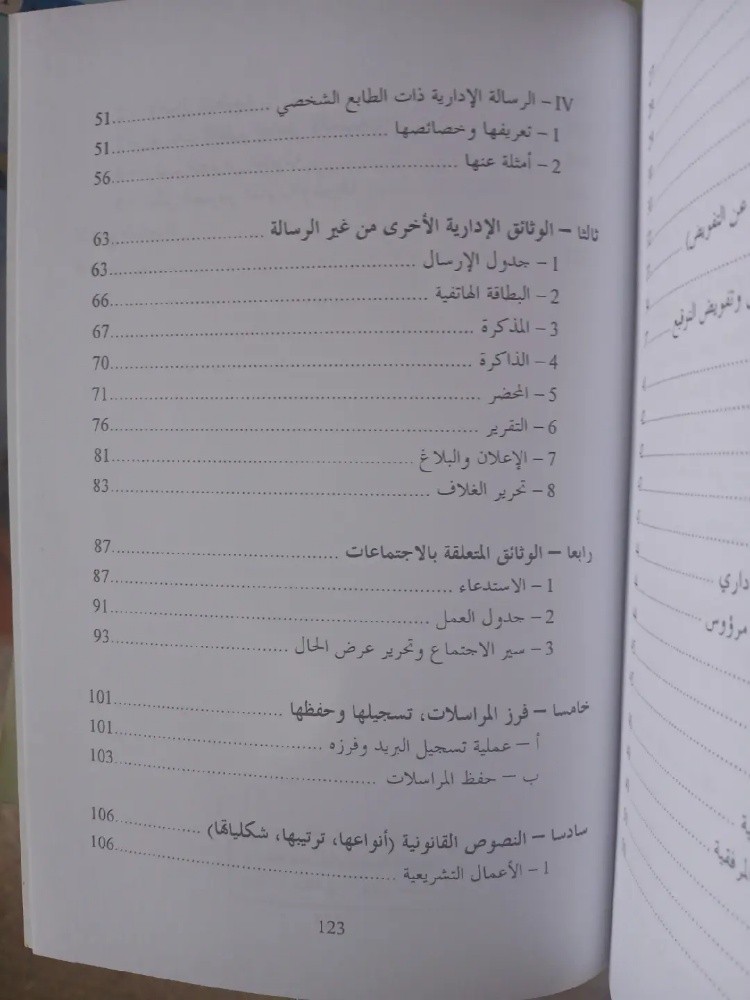 IV – الرسالة الإدارية ذات الطابع الشخصي ........ 51
1 – تعريفها وخصائصها ........ 51
2 – أمثلة عنها ........ 56
ثالثا – الوثائق الإدارية الأخرى من غير الرسالة ........ 63
1 – جدول الإرسال ........ 63
2 – البطاقة الهاتفية ........ 66
3 – المذكرة ........ 67
4 – الذاكرة ........ 70
5 – المحضر ........ 71
6 – التقرير ........ 76
7 – الإعلان والبلاغ ........ 81
8 – تحرير الغلاف ........ 83
رابعا – الوثائق المتعلقة بالاجتماعات ........ 87
1 – الاستدعاء ........ 87
2 – جدول العمل ........ 91
3 – سير الاجتماع وتحرير عرض الحال ........ 93
خامسا – فرز المراسلات، تسجيلها وحفظها ........ 101
أ – عملية تسجيل البريد وفرزه ........ 101
ب – حفظ المراسلات ........ 103
سادسا – النصوص القانونية (أنواعها، ترتيبها، شكلياتها) ........ 106
1 – الأعمال التشريعية ........ 106
123
عن التفويض)
وتفويض التوقيع
داري
مرؤوس
المرفقية